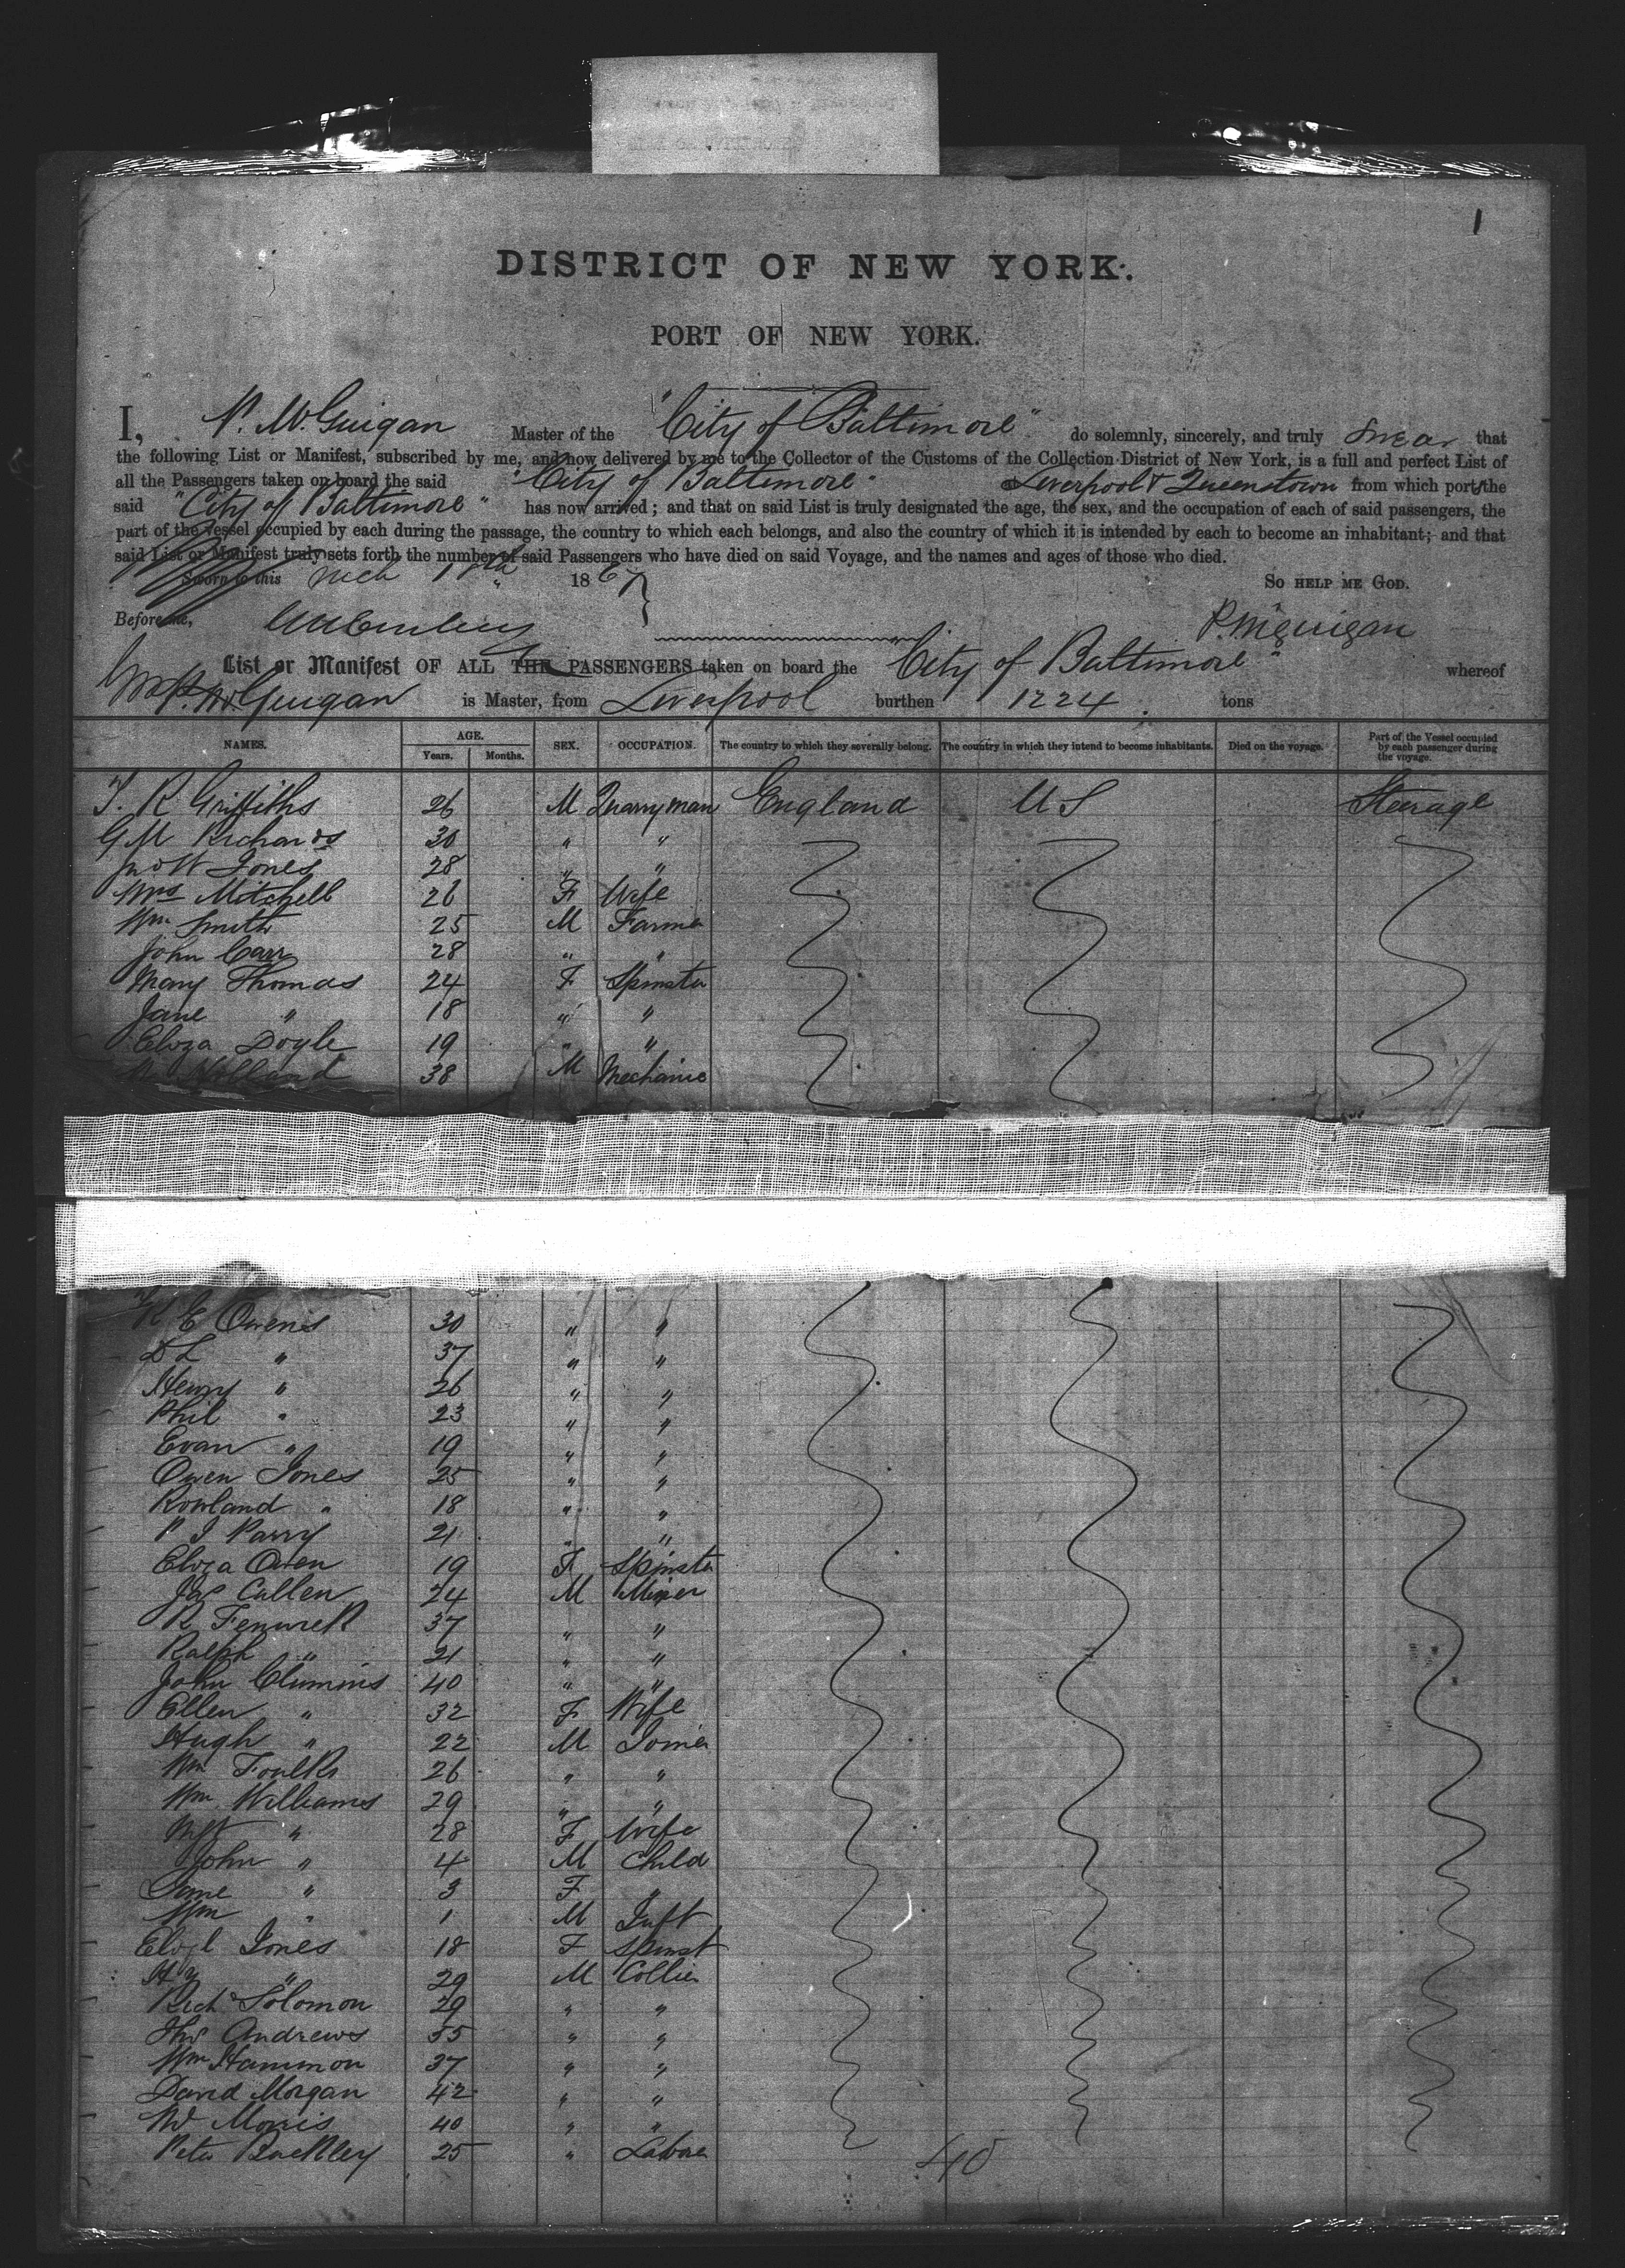 1
DISTRICT OF NEW YORK.
PORT OF NEW YORK.
I, P. McGuigan Master of the "City of Baltimore" do solemnly, sincerely, and truly swear that
the following List or Manifest, subscribed by me, and now delivered by me to the Collector of the Customs of the Collection District of New York, is a full and perfect List of
all the Passengers taken on board the said "City of Baltimore" Liverpool & Queenstown from which ports the
said "City of Baltimore" has now arrived; and that on said List is truly designated the age, the sex, and the occupation of each of said passengers, the
part of the vessel occupied by each during the passage, the country to which each belongs, and also the country of which it is intended by each to become an inhabitant; and that
said List or Manifest truly sets forth the number of said Passengers who have died on said Voyage, and the names and ages of those who died.
Sworn to this 18th 1867 SO HELP ME GOD.
Before me, P. McGuigan
List or Manifest OF ALL THE PASSENGERS taken on board the "City of Baltimore" whereof
P. McGuigan is Master, from Liverpool burthen 1224 tons
NAMES. AGE. Years. Months. SEX. OCCUPATION. The country to which they severally belong. The country in which they intend to become inhabitants. Died on the voyage. Part of the Vessel occupied by each passenger during the voyage.
T. R Griffiths 26 M Quarryman England U S Steerage
G M Richards 30 " "
Jno W Jones 28 " "
Mrs Mitchell 26 F Wife
Wm Smith 25 M Farmer
John Carr 28 " "
Mary Thomas 24 F Spinster
Jane " 18 " "
Eliza Doyle 19 " "
Holland 38 M Mechanic
R E Owens 30 " "
D L " 37 " "
Henry " 26 " "
Phil " 23 " "
Evan " 19 " "
Owen Jones 25 " "
Rowland " 18 " "
P J Parry 21 " "
Eliza Owen 19 F Spinster
Jas Cullen 24 M Miner
R Fenwick 37 " "
Ralph " 21 " "
John Clummis 40 " "
Ellen " 32 F Wife
Hugh " 22 M Joiner
Wm Foulks 26 " "
Wm Williams 29 " "
" 28 F Wife
John " 4 M Child
Jane " 3 F "
Wm " 1 M Inft
Elizh Jones 18 F Spinst
Hy " 29 M Collier
Richd Solomon 29 " "
Thos Andrews 55 " "
Wm Hammon 37 " "
David Morgan 42 " "
Morris 40 " "
Peter Buckley 25 " Labore
40